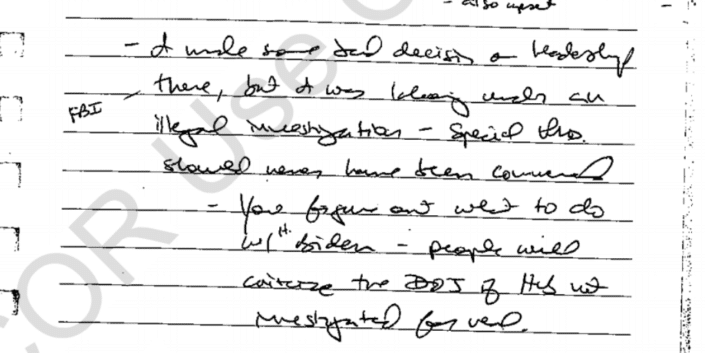 - also upset
- I made some bad decisions on leadership
there, but I was laboring under an
FBI
illegal investigation - Special Pros.
should never have been commenced
- You figure out what to do
w/ H. Biden - people will
criticize the DOJ if he's not
investigated for real.
COR Use O